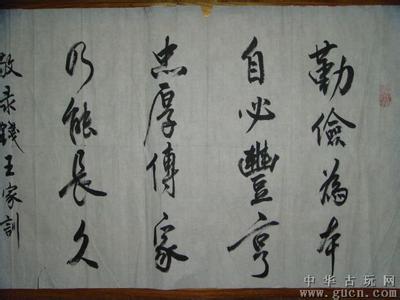 勤儉為本
自必豐亨
忠厚傳家
乃能長久
敬录錢王家訓
中华古玩网
www.gucn.com